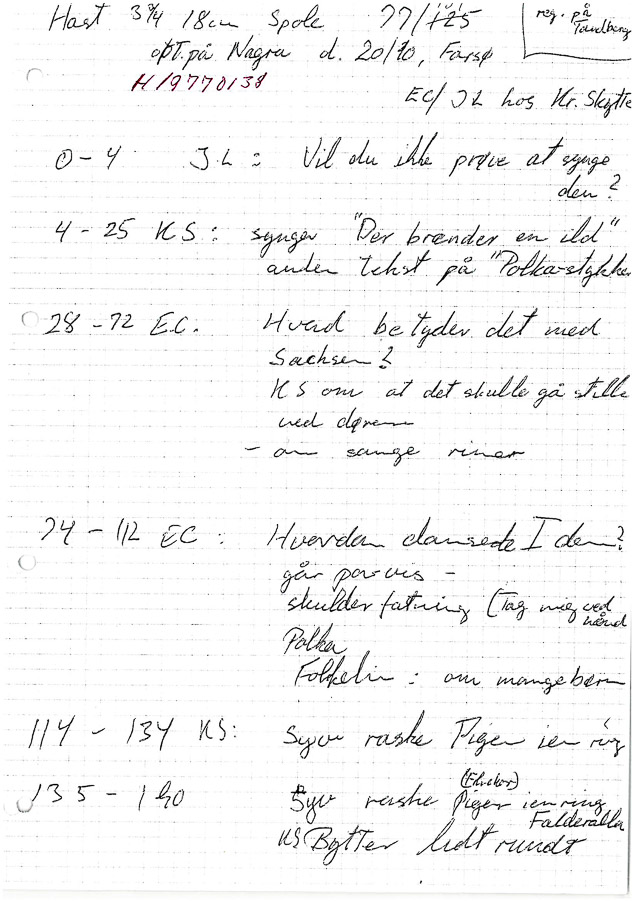 Hast 3 3/4 18cm Spole 77/125
reg. på
Tandberg
opt. på Nagra d. 20/10, Farsø
H/9770138
EC/JL hos Kr. Skytte
0-4 JL: Vil du ikke prøve at synge
den?
4-25 KS: synger "Der brænder en ild"
anden tekst på "Polka-stykke
28-72 E.C. Hvad betyder det med
Sachsen?
KS om at det skulle gå stille
ved døren
- om sange
74-112 EC: Hvordan dansede I den?
går parvis -
skulder fatning (Tag mig ved
hånd
Polka
: om mange børn
114-134 KS: Syv raske Piger i en ring
135-190 Syv raske Piger i en ring
Falderalla
KS Bytter lidt rundt